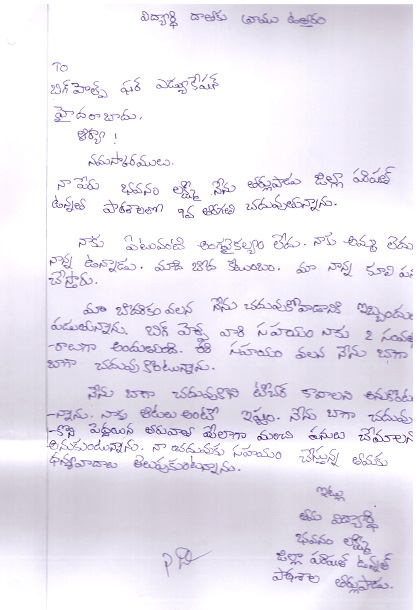 విద్యార్థి దాతకు వ్రాయు ఉత్తరం
To
బిగ్ హెల్ప్ ఫర్ ఎడ్యుకేషన్
హైదరాబాదు.
ఆర్యా !
నమస్కారములు.
నా పేరు భవనం లక్ష్మీ నేను తర్లుపాడు జిల్లా పరిషత్
ఉన్నత పాఠశాలలో తరగతి చదువుతున్నాను.
నాకు ఎటువంటి అంగవైకల్యం లేదు. నాకు అమ్మ లేదు
నాన్న ఉన్నాడు. మాది బీద కుటుంబం. మా నాన్న కూలి పని
చేస్తారు.
మా బీదరికం వలన నేను చదువుకోవడానికి ఇబ్బందు
పడుతున్నాను. బిగ్ హెల్ప్ వారి సహయం నాకు 2 సంవత్స
-రాలుగా అందుతుంది. ఈ సహయం వలన నేను బాగా
బాగా చదువు కొంటున్నాను.
నేను బాగా చదువుకొని టీచర్ కావాలని అనుకొంటు
-న్నాను. నాకు ఆటలు అంటే ఇష్టం. నేను బాగా చదువు
-కొని పెద్దయిన తరువాత మీలాగా మంచి పనులు చేయాలని
అనుకుంటున్నాను. నా చదువుకు సహయం చేస్తున్న తమకు
ధన్యవాదాలు తెలుపుకుంటున్నాను.
ఇట్లు
తమ విద్యార్థి
భవనం లక్ష్మీ
జిల్లా పరిషత్ ఉన్నత
పాఠశాల తర్లుపాడు.